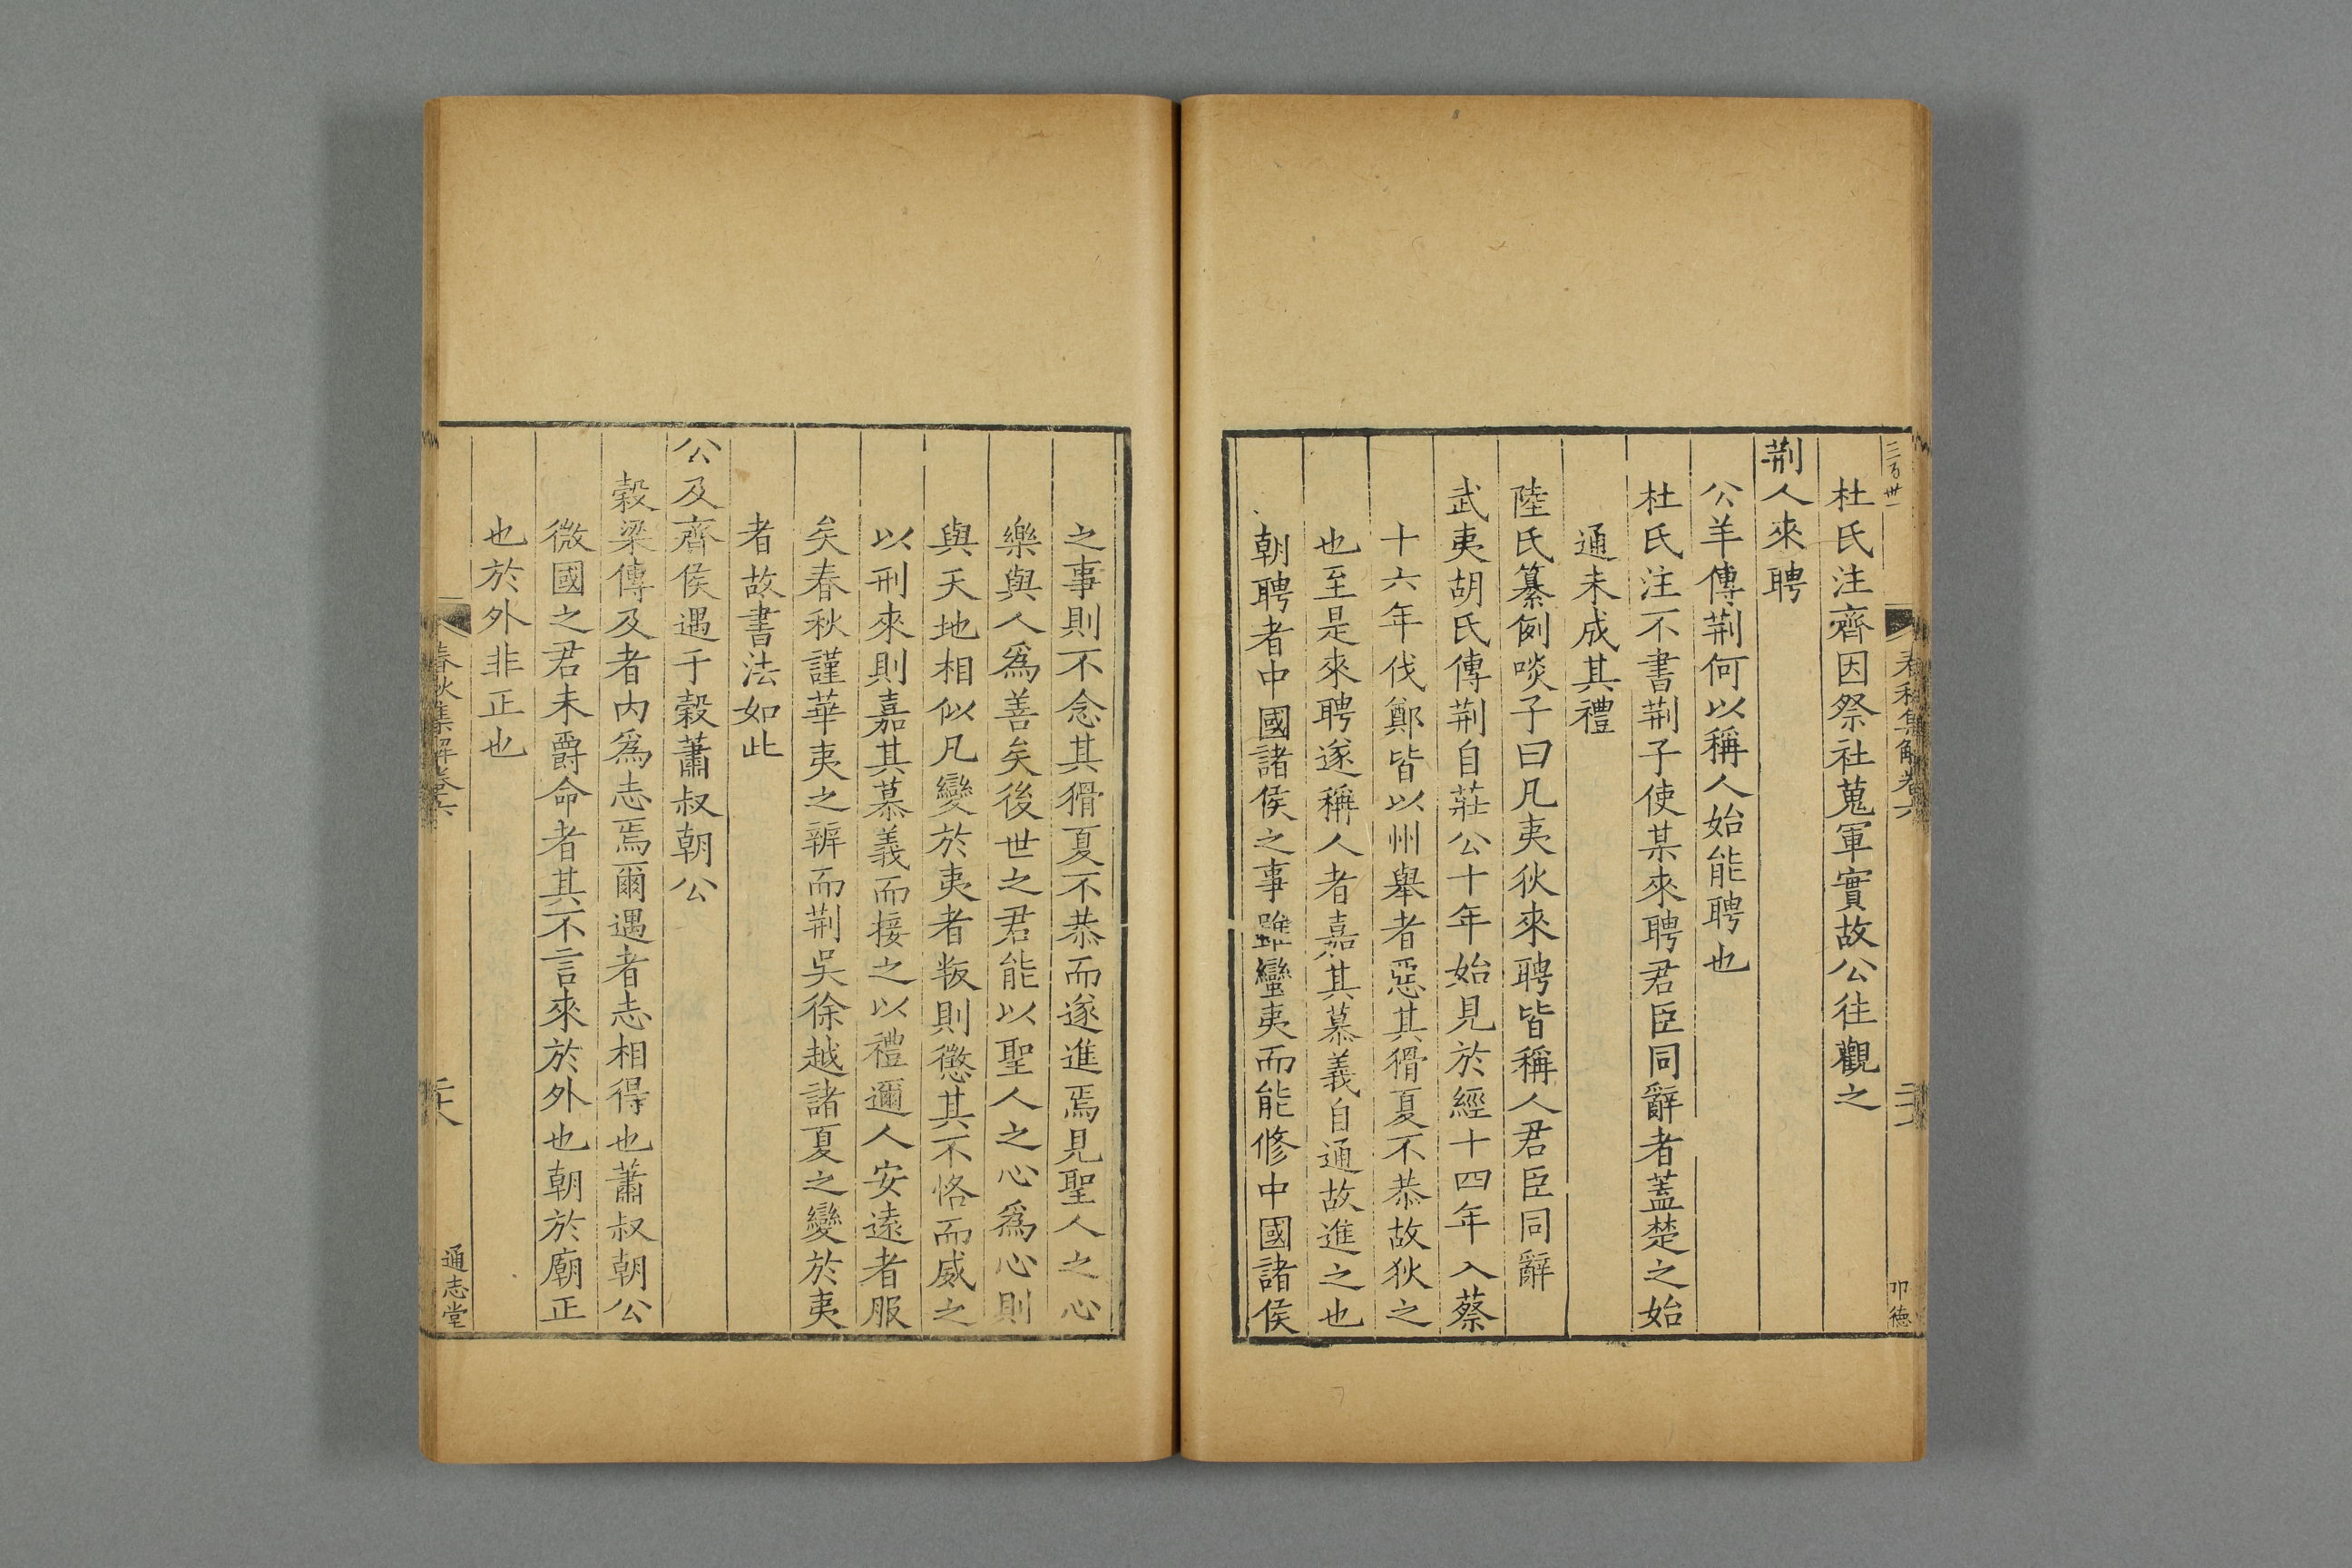 三百卅一
春秋集解卷六
杜氏注齊因祭社蒐軍實故公往觀之
荆人來聘
公羊傳荆何以稱人始能聘也
杜氏注不書荆子使某來聘君臣同辭者蓋楚之始
通未成其禮
陸氏纂例啖子曰凡夷狄來聘皆稱人君臣同辭
武夷胡氏傳荆自莊公十年始見於經十四年入蔡
十六年伐鄭皆以州舉者惡其猾夏不恭故狄之
也至是來聘遂稱人者嘉其慕義自通故進之也
朝聘者中國諸侯之事雖蠻夷而能修中國諸侯
之事則不念其猾夏不恭而遂進焉見聖人之心
樂與人爲善矣後世之君能以聖人之心爲心則
與天地相似凡變於夷者叛則懲其不恪而威之
以刑來則嘉其慕義而接之以禮邇人安遠者服
矣春秋謹華夷之辨而荆吳徐越諸夏之變於夷
者故書法如此
公及齊侯遇于穀蕭叔朝公
穀梁傳及者內爲志焉爾遇者志相得也蕭叔朝公
微國之君未爵命者其不言來於外也朝於廟正
也於外非正也
春秋集解卷六
通志堂